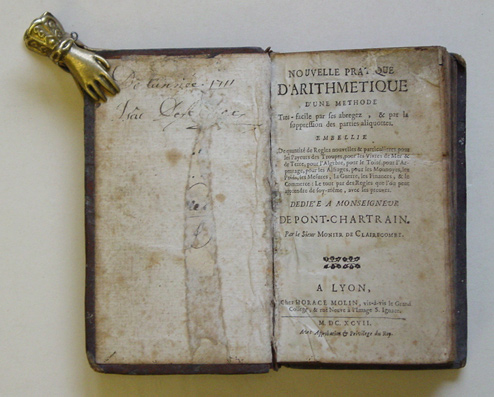 1711
NOUVELLE PRATIQUE
D'ARITHMETIQUE
D'UNE METHODE
Tres-facile par ses abregez, & par la
suppression des parties aliquotes.
EMBELLIE
De quantité de Regles nouvelles & particulieres pour
les Payeurs des Troupes, pour les Vivres de Mer &
de Terre, pour l'Algebre, pour le Toisé, pour l'Ar-
pentage, pour les Alliages, pour les Monnoyes, les
Poids, les Mesures, la Guerre, les Finances, & le
Commerce: Le tout par des Regles que l'on peut
apprendre de soy-même, avec les preuves.
DEDIE'E A MONSEIGNEUR
DE PONT-CHARTRAIN.
Par le Sieur MONIER DE CLAIRECOMBE.
A LYON,
Chez HORACE MOLIN, vis-à-vis le Grand
College, & ruë Neuve à l'Image S. Ignace.
M. DC. XCVII.
Avec Approbation & Privilege du Roy.